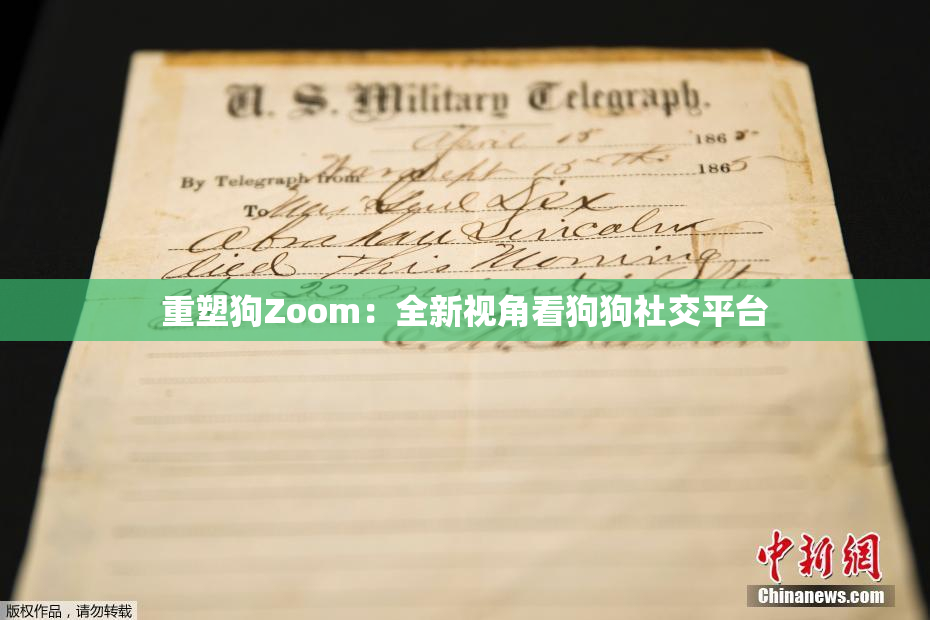 U. S. Military Telegraph.
April 15 1865
By Telegraph from War Dept 15th 1865
To Maj Genl Dix
Abraham Lincoln
died This Morning
at 22 minutes after
重塑狗Zoom：全新视角看狗狗社交平台
E. M. Stanton
中新网
Chinanews.com
版权作品，请勿转载